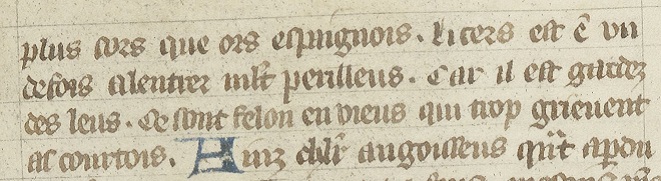 plus sors que ors espaignois. Li cers est ē vn
defois a lentrer ml̃t perilleus. Car il est gardez
des leus. Ce sont felon enuieus qui trop grieuent
as courtois. Ainz chl̃r angoisseus qñt a perdu